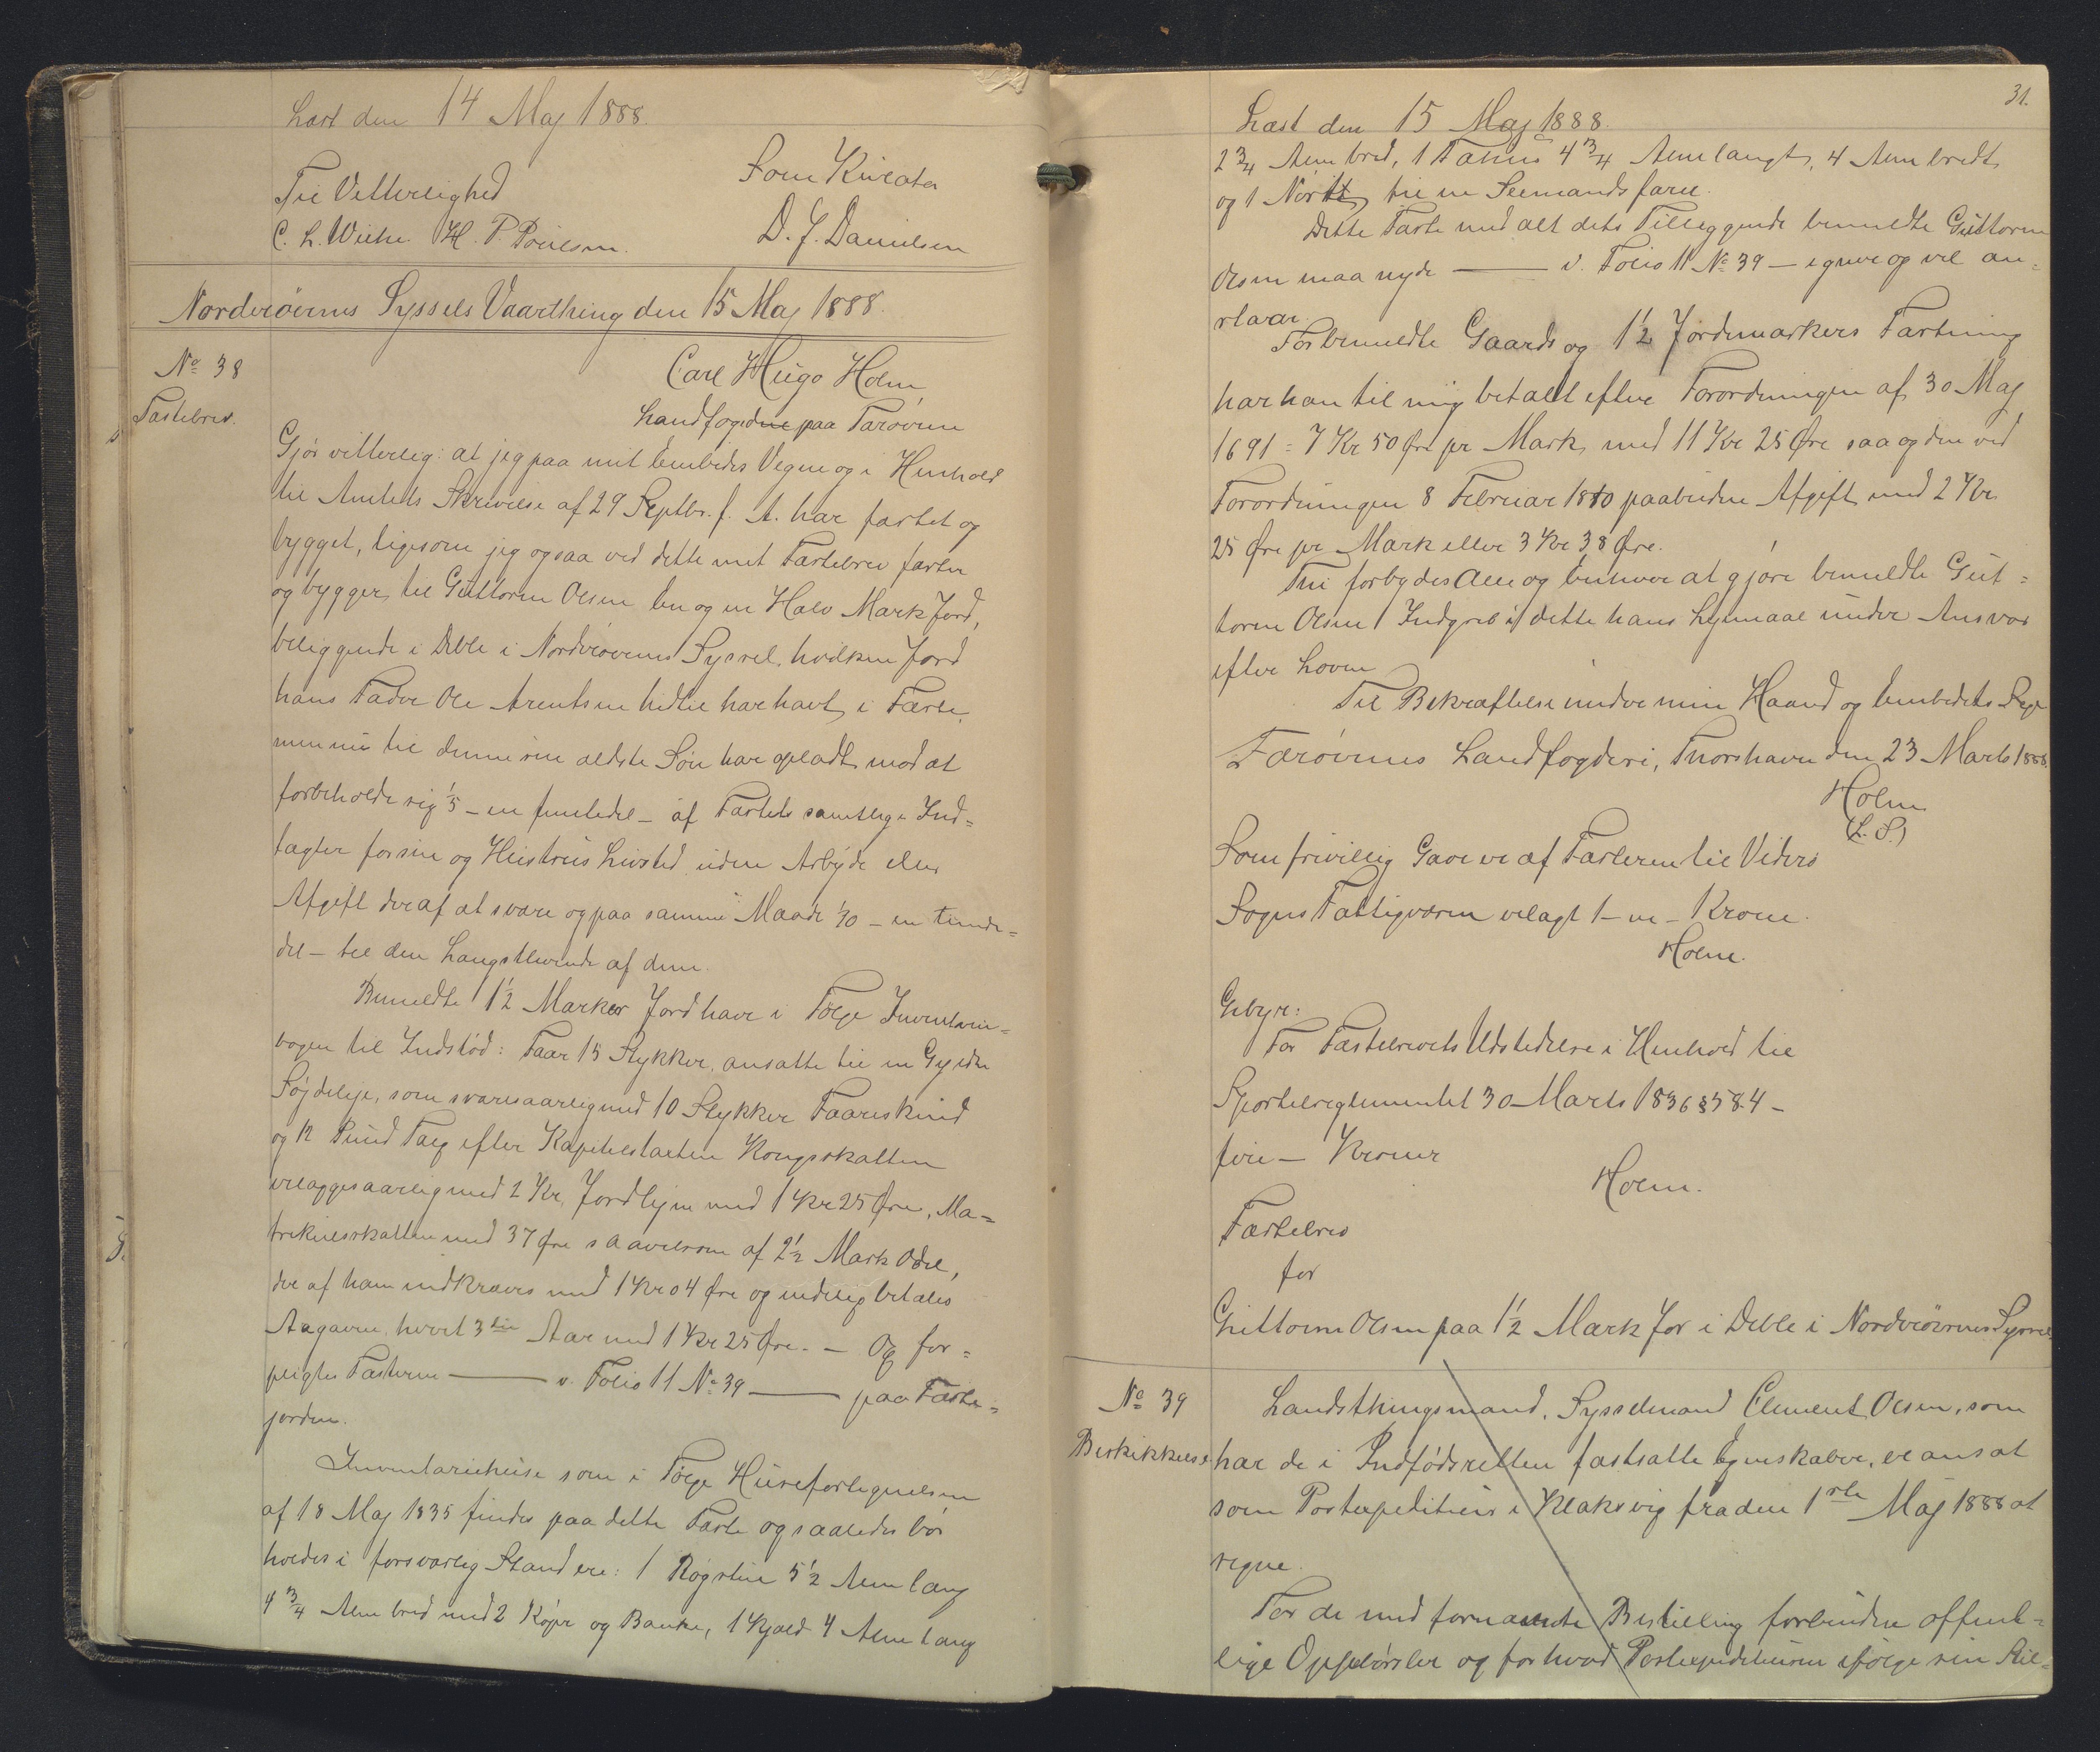 Læst den 14 Maj 1888.
Til Vitterlighed
Som Kurator
C. L. Wiehe H. P. Poulsen.
D. J. Danielsen
Norderøernes Syssels Vaarthing den 15 Maj 1888.
No 38
Fæstebrev.
Carl Hugo Holm
Landfoged paa Færøerne
Gjør vitterlig: at jeg paa mit Embedes Vegne og i Henhold
til Amtets Skrivelse af 29 Septbr. f. A. har fæstet og
bygget, ligesom jeg ogsaa ved dette mit Fæstebrev fæster
og bygger til Guttorm Olsen en og en Halv Mark Jord,
beliggende i Deble i Norderøernes Syssel, hvilken Jord
hans Fader Ole Arentsen hidtil har havt i Fæste,
men nu til denne sin ældste Søn har opladt mod at
forbeholde sig 1/5 - en femtedel - af Fæstets samtlige Ind=
tægter for sin og Hustrus Livstid uden Arbejde eller
Afgift deraf at svare og paa samme Maade 1/10 - en tiende=
del - til den Længstlevende af dem.
Bemeldte 1 1/2 Marker Jord have i Følge Inventarie=
bogen til Indstød: Faar 15 Stykker, ansatte til en Gylden
Søjdeleje, som svares aarlig med 10 Stykker Faareskind
og 12 Pund Talg efter Kapitelstaxten Kongsskatten
erlægges aarlig med 2 Kr, Jordlejen med 1 Kr 25 Øre, Ma=
trikulsskatten med 37 Øre saavelsom af 2 1/2 Mark Odel,
der af ham indkræves med 1 Kr 04 Øre og endelig betales
Aagaven hvert 3die Aar med 1 Kr 25 Øre. - Og for=
pligtes Fæsteren ——— v. Folio 11 No 39 ——— paa Fæste=
jorden.
Inventariehuse som i Følge Husefortegnelsen
af 18 Maj 1835 findes paa dette Fæste og saaledes bør
holdes i forsvarlig Stand ere: 1 Røgstue 5 1/2 Alen lang
4 3/4 Alen bred med 2 Køjer og Bænke, 1 Kjald 4 Alen lang
31.
Læst den 15 Maj 1888.
2 3/4 Alen bred, 1 4 3/4 Alen langt, 4 Alen bredt
og 1 til en Seemands fare.
Dette Fæste med alt dets Tilleggende bemeldte Guttorm
Olsen maa nyde ——— v. Folio 11 No 39 — egner og vel an=
staar.
For bemeldte Gaards og 1 1/2 Jordemarkers Fæstning
har han til mig betalt efter Forordningen af 30 Maj
1691 = 7 Kr 50 Øre pr Mark med 11 Kr 25 Øre saa og den ved
Forordningen 8 Februar 1810 paabudne Afgift med 2 Kr.
25 Øre pr Mark eller 3 Kr 38 Øre.
Thi forbydes Alle og Enhver at gjøre bemeldte Gut=
torm Olsen Indgreb i dette hans Lejemaal under Ansvar
efter Loven
Til Bekræftelse under min Haand og Embedets Segl
Færøernes Landfogderi, Thorshavn den 23 Marts 1888.
Holm
(L. S.)
Som frivillig Gave er af Fæsteren til Viderø
Sogns Fattigvæsen erlagt 1 - en - Krone.
Holm.
Gebyr:
For Fæstebrevets Udstedelse i Henhold til
Sportelreglementet 30 Marts 1836 § 58. 4 -
fire - Kroner
Holm.
Fæstebrev
for
Guttorm Olsen paa 1 1/2 Mark Jor i Deble i Norderøernes Syssel
No 39
Beskikkelse
Landsthingsmand, Sysselmand Clement Olsen, som
har de i Indfødsretten fastsatte Egenskaber, er ansat
som Postexpeditiør i Klaksvig fra den 1ste Maj 1888 at
regne.
For de med fornævnte Bestilling forbundne offent=
lige Oppebørsler og for hvad Postexpeditiøren ifølge sin Stil=